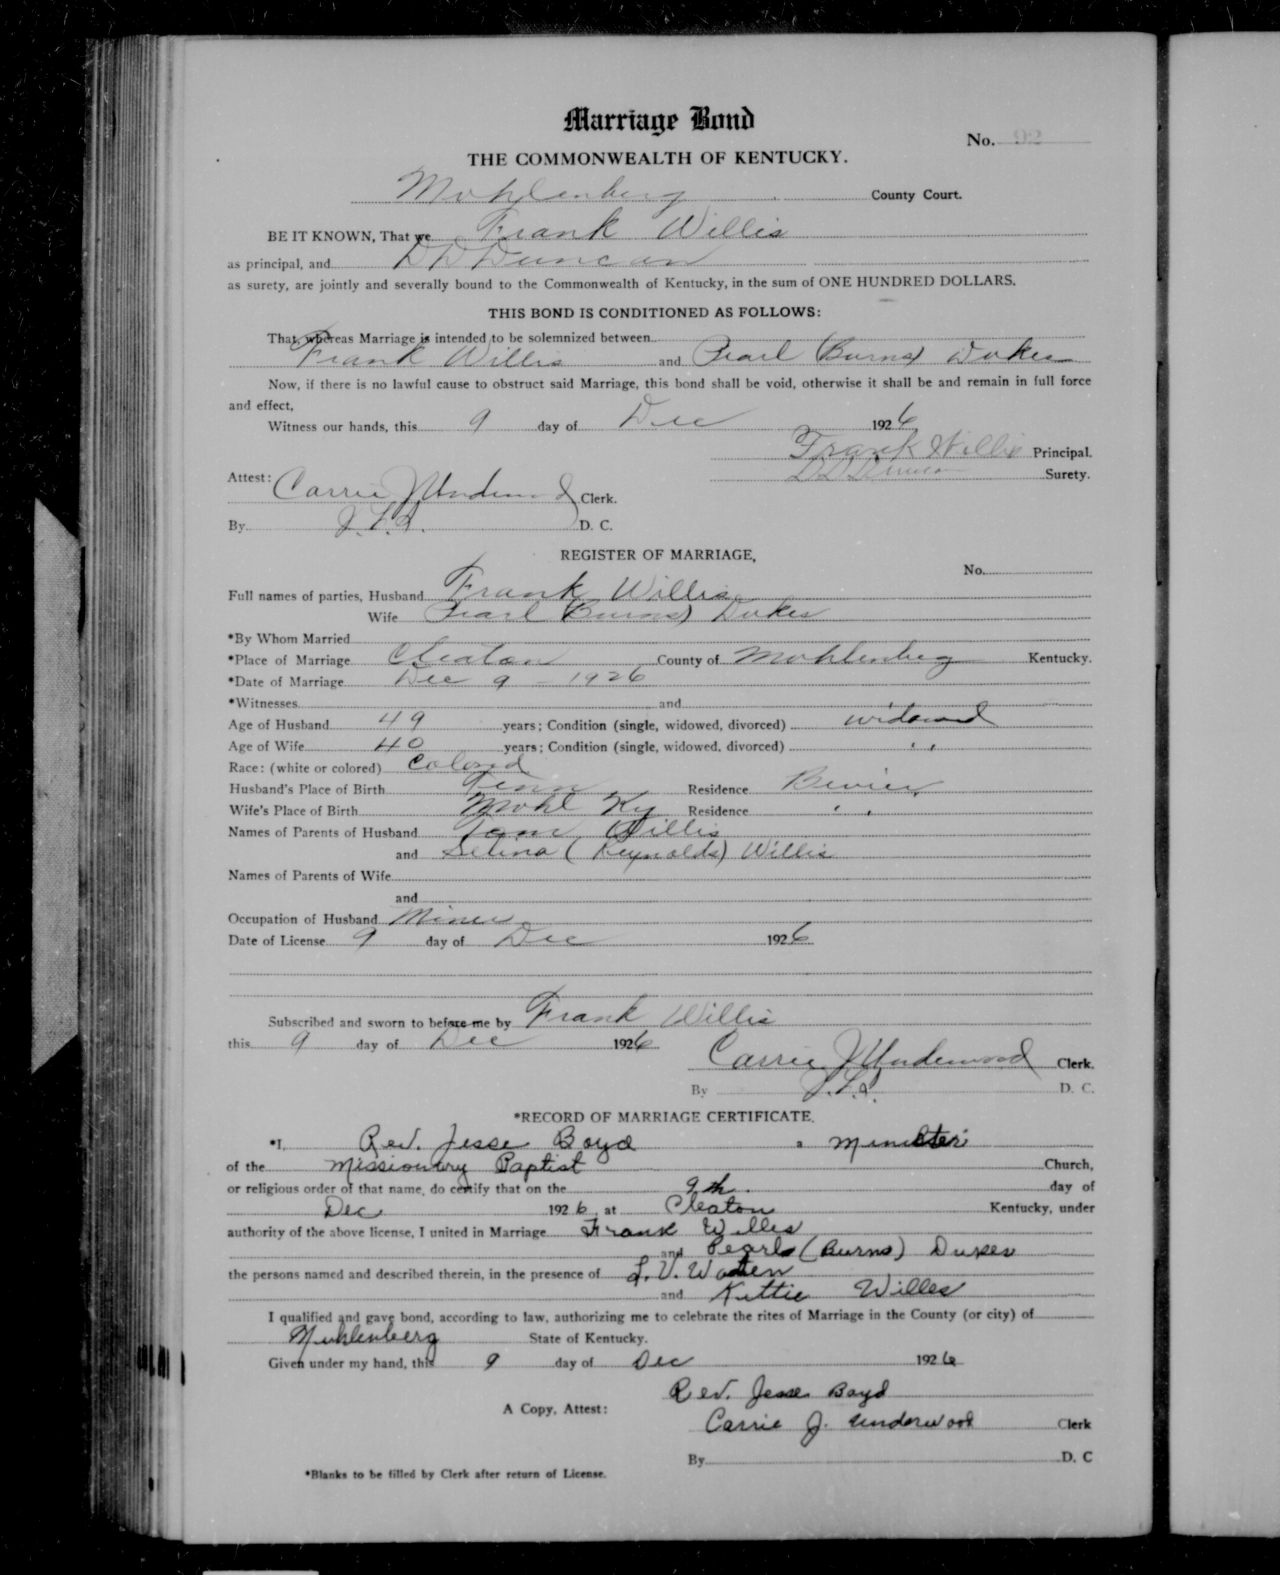 Marriage Bond
No. 92
THE COMMONWEALTH OF KENTUCKY.
Mohlenberg County Court.
BE IT KNOWN, That we Frank Willis
as principal, and D D Duncan
as surety, are jointly and severally bound to the Commonwealth of Kentucky, in the sum of ONE HUNDRED DOLLARS.
THIS BOND IS CONDITIONED AS FOLLOWS:
That, whereas Marriage is intended to be solemnized between
Frank Willis and Pearl (Burns) Dukes
Now, if there is no lawful cause to obstruct said Marriage, this bond shall be void, otherwise it shall be and remain in full force
and effect,
Witness our hands, this 9 day of Dec 1926
Frank Willis Principal.
D D Duncan Surety.
Attest: Carrie J Underwood Clerk.
By D. C.
REGISTER OF MARRIAGE,
No.
Full names of parties, Husband Frank Willis
Wife Pearl (Burns) Dukes
*By Whom Married
*Place of Marriage Cleaton County of Mohlenberg Kentucky.
*Date of Marriage Dec 9 - 1926
*Witnesses and
Age of Husband 49 years; Condition (single, widowed, divorced) widowed
Age of Wife 40 years; Condition (single, widowed, divorced) " "
Race: (white or colored) Colored
Husband's Place of Birth Tenn Residence Bevier
Wife's Place of Birth Mohl Ky Residence " "
Names of Parents of Husband Willis
and Selina (Reynolds) Willis
Names of Parents of Wife
and
Occupation of Husband Miner
Date of License 9 day of Dec 1926
Subscribed and sworn to before me by Frank Willis
this 9 day of Dec 1926
Carrie J Underwood Clerk.
By D. C.
*RECORD OF MARRIAGE CERTIFICATE.
*I, Rev. Jesse Boyd a minister
of the Missionary Baptist Church,
or religious order of that name, do certify that on the 9th day of
Dec 1926, at Cleaton Kentucky, under
authority of the above license, I united in Marriage Frank Willes
and Pearl (Burns) Dukes
the persons named and described therein, in the presence of L. V. Waden
and Kittie Willes
I qualified and gave bond, according to law, authorizing me to celebrate the rites of Marriage in the County (or city) of
Muhlenberg State of Kentucky.
Given under my hand, this 9 day of Dec 1926
Rev. Jesse Boyd
A Copy, Attest: Carrie J. Underwood Clerk
By D. C
*Blanks to be filled by Clerk after return of License.